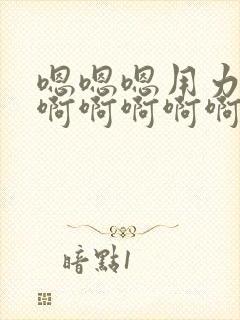 嗯嗯嗯用力
啊啊啊啊啊
暗點1